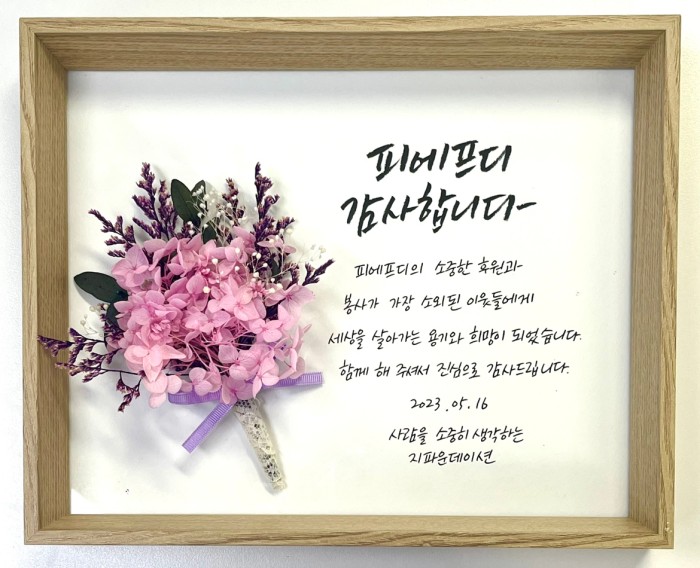 피에프디
감사합니다-
피에프디의 소중한 후원과
봉사가 가장 소외된 이웃들에게
세상을 살아가는 용기와 희망이 되었습니다.
함께 해 주셔서 진심으로 감사드립니다.
2023.05.16
사람을 소중히 생각하는
지파운데이션